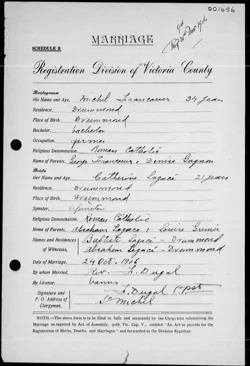 001656
MARRIAGE
SCHEDULE B
Registration Division of Victoria County
Bridegroom
His Name and Age, Michel Francoeur 34 years
Residence, Drummond
Place of Birth, Drummond
Bachelor, bachelor
Occupation, farmer
Religious Denomination, Roman Catholic
Name of Parents, George Francoeur & Denise Gagnon
Bride
Her Name and Age, Catherine Lagacé 21 years
Residence, Drummond
Place of Birth, Drummond
Spinster, spinster
Religious Denomination, Roman Catholic
Name of Parents, Abraham Lagacé & Louise
Names and Residences of Witnesses, Baptiste Lagacé - Drummond
Abraham Lagacé - Drummond
Date of Marriage, 24 Oct. 1906
By whom Married, Rev. F. Dugal
By License or Banns, banns
Signature and P. O. Address of Clergyman. F. Dugal Ptr
St Michel
NOTE.—The above form is to be filled in fully and accurately by the Clergyman solemnizing the Marriage as required by Act of Assembly, entitled "An Act to provide for the Registration of Births, Deaths, and Marriages," and forwarded to the Division Registrar.